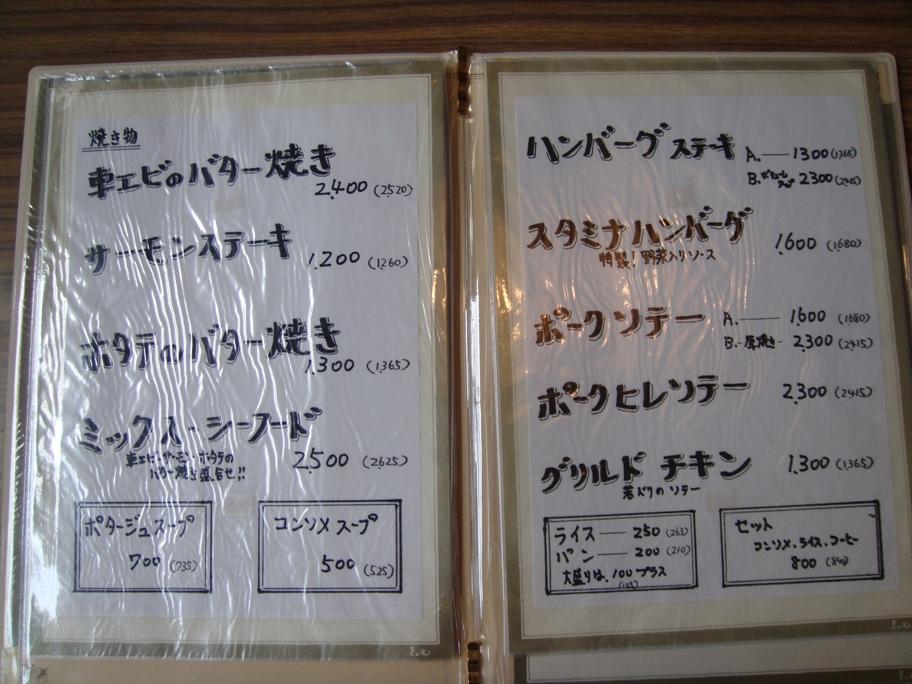 焼き物
車エビのバター焼き
2,400 (2520)
サーモンステーキ
1,200 (1260)
ホタテのバター焼き
1,300 (1,365)
ミックス・シーフード
車エビ・サーモン・ホタテの
バター焼き盛合せ!!
2,500 (2625)
ポタージュスープ
700 (735)
コンソメスープ
500 (525)
ハンバーグステーキ A.— 1300 (1365)
B. 2300 (2415)
スタミナハンバーグ 1,600 (1680)
特製!野菜入りソース
ポークソテー A.— 1,600 (1680)
B.-厚焼き- 2,300 (2415)
ポークヒレソテー 2,300 (2415)
グリルドチキン 1,300 (1,365)
若ドリのソテー
ライス — 250 (263)
パン — 200 (210)
大盛りは、100プラス
(105)
セット
コンソメ、ライス、コーヒー
800 (840)